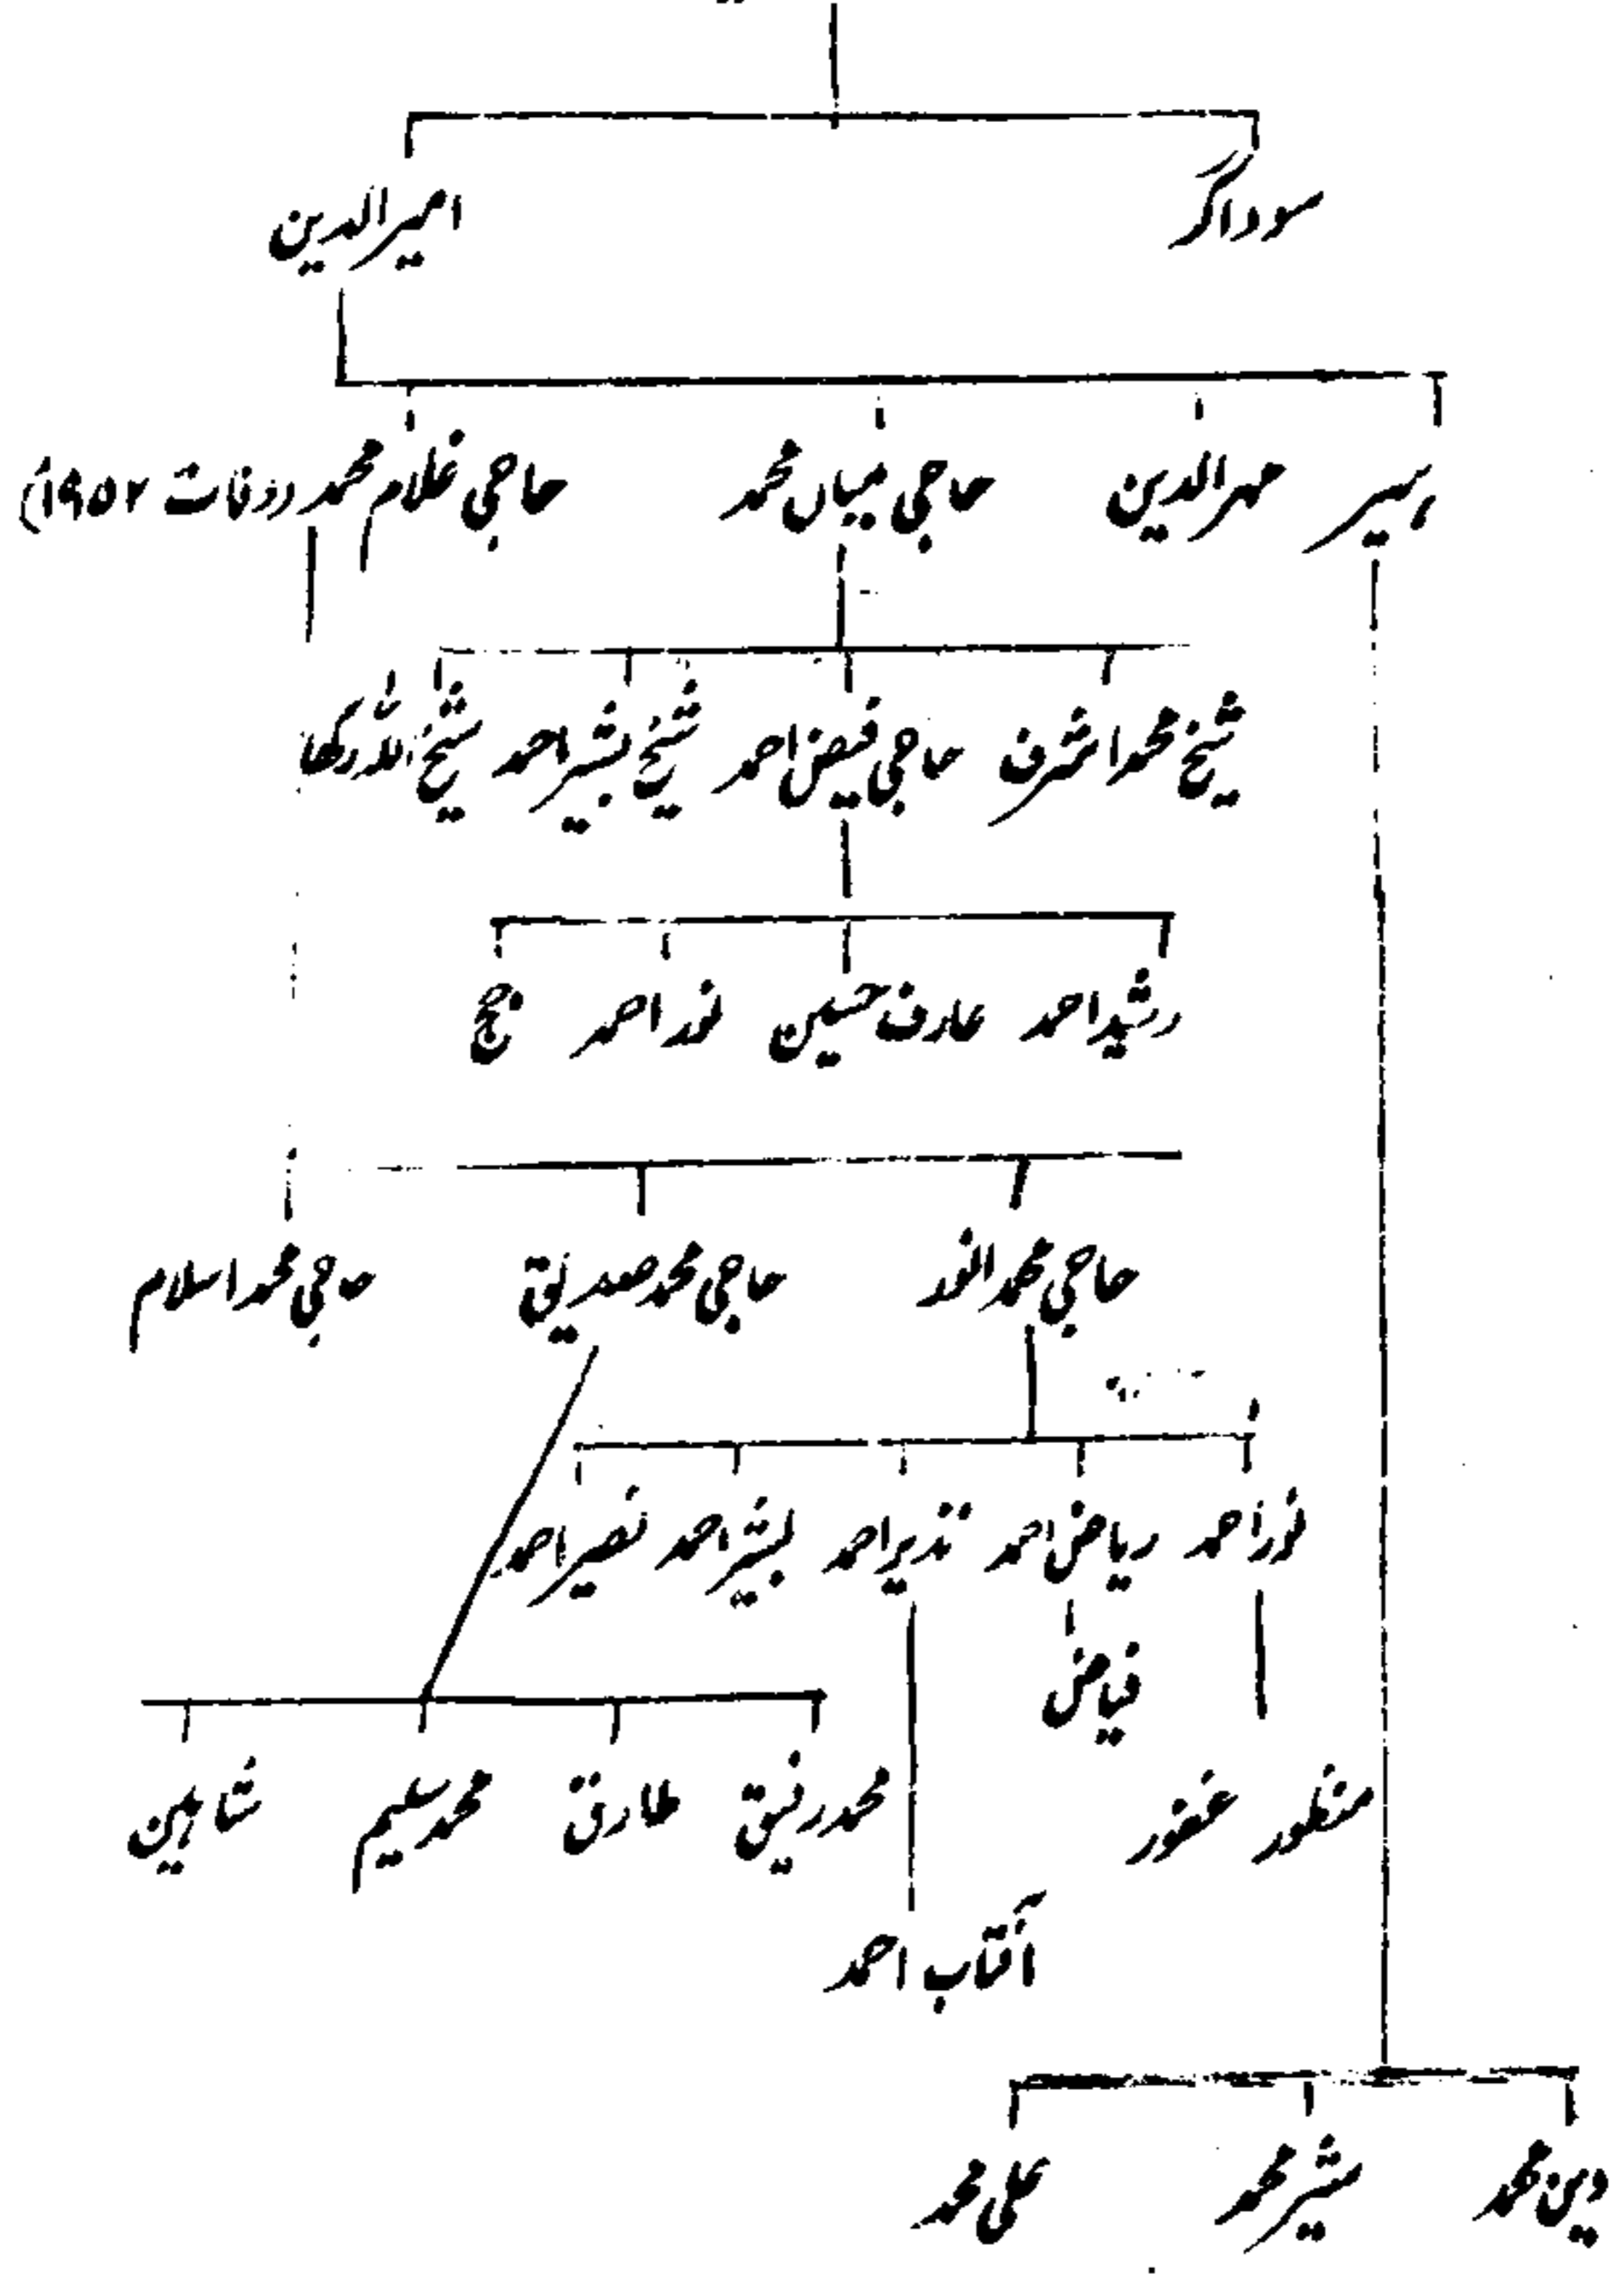 سوداگر امیرالدین
ہسیر مہرالدین حاجی میاں محمد حاجی غلام محمد (وفات ۱۹۵۲ء)
شیخ محمد اشرف حاجی فیض احمد شیخ بشیر احمد شیخ اللہ رکھا
رشید احمد عارف حسین نور احمد
حاجی محمد انور حاجی محمد صدیق حاجی محمد اسلام
نور احمد ریاض احمد نذیر احمد بشیر احمد نصیر احمد
فیاض
منظور غفور محمد رفیق طارق محمد سلیم شاہین
آفتاب احمد
دین محمد شیر محمد علی محمد